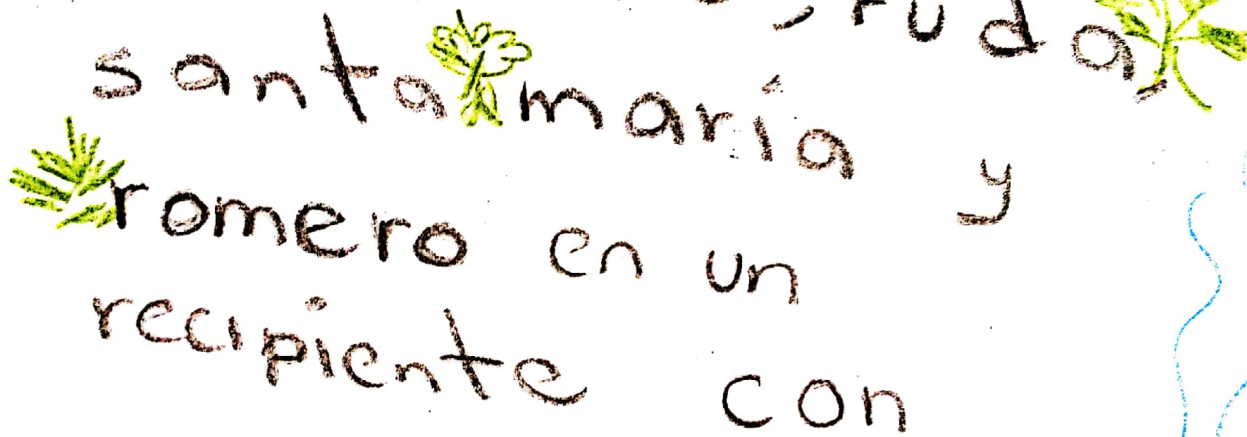 , ruda,
santa maría y
romero en un
recipiente con